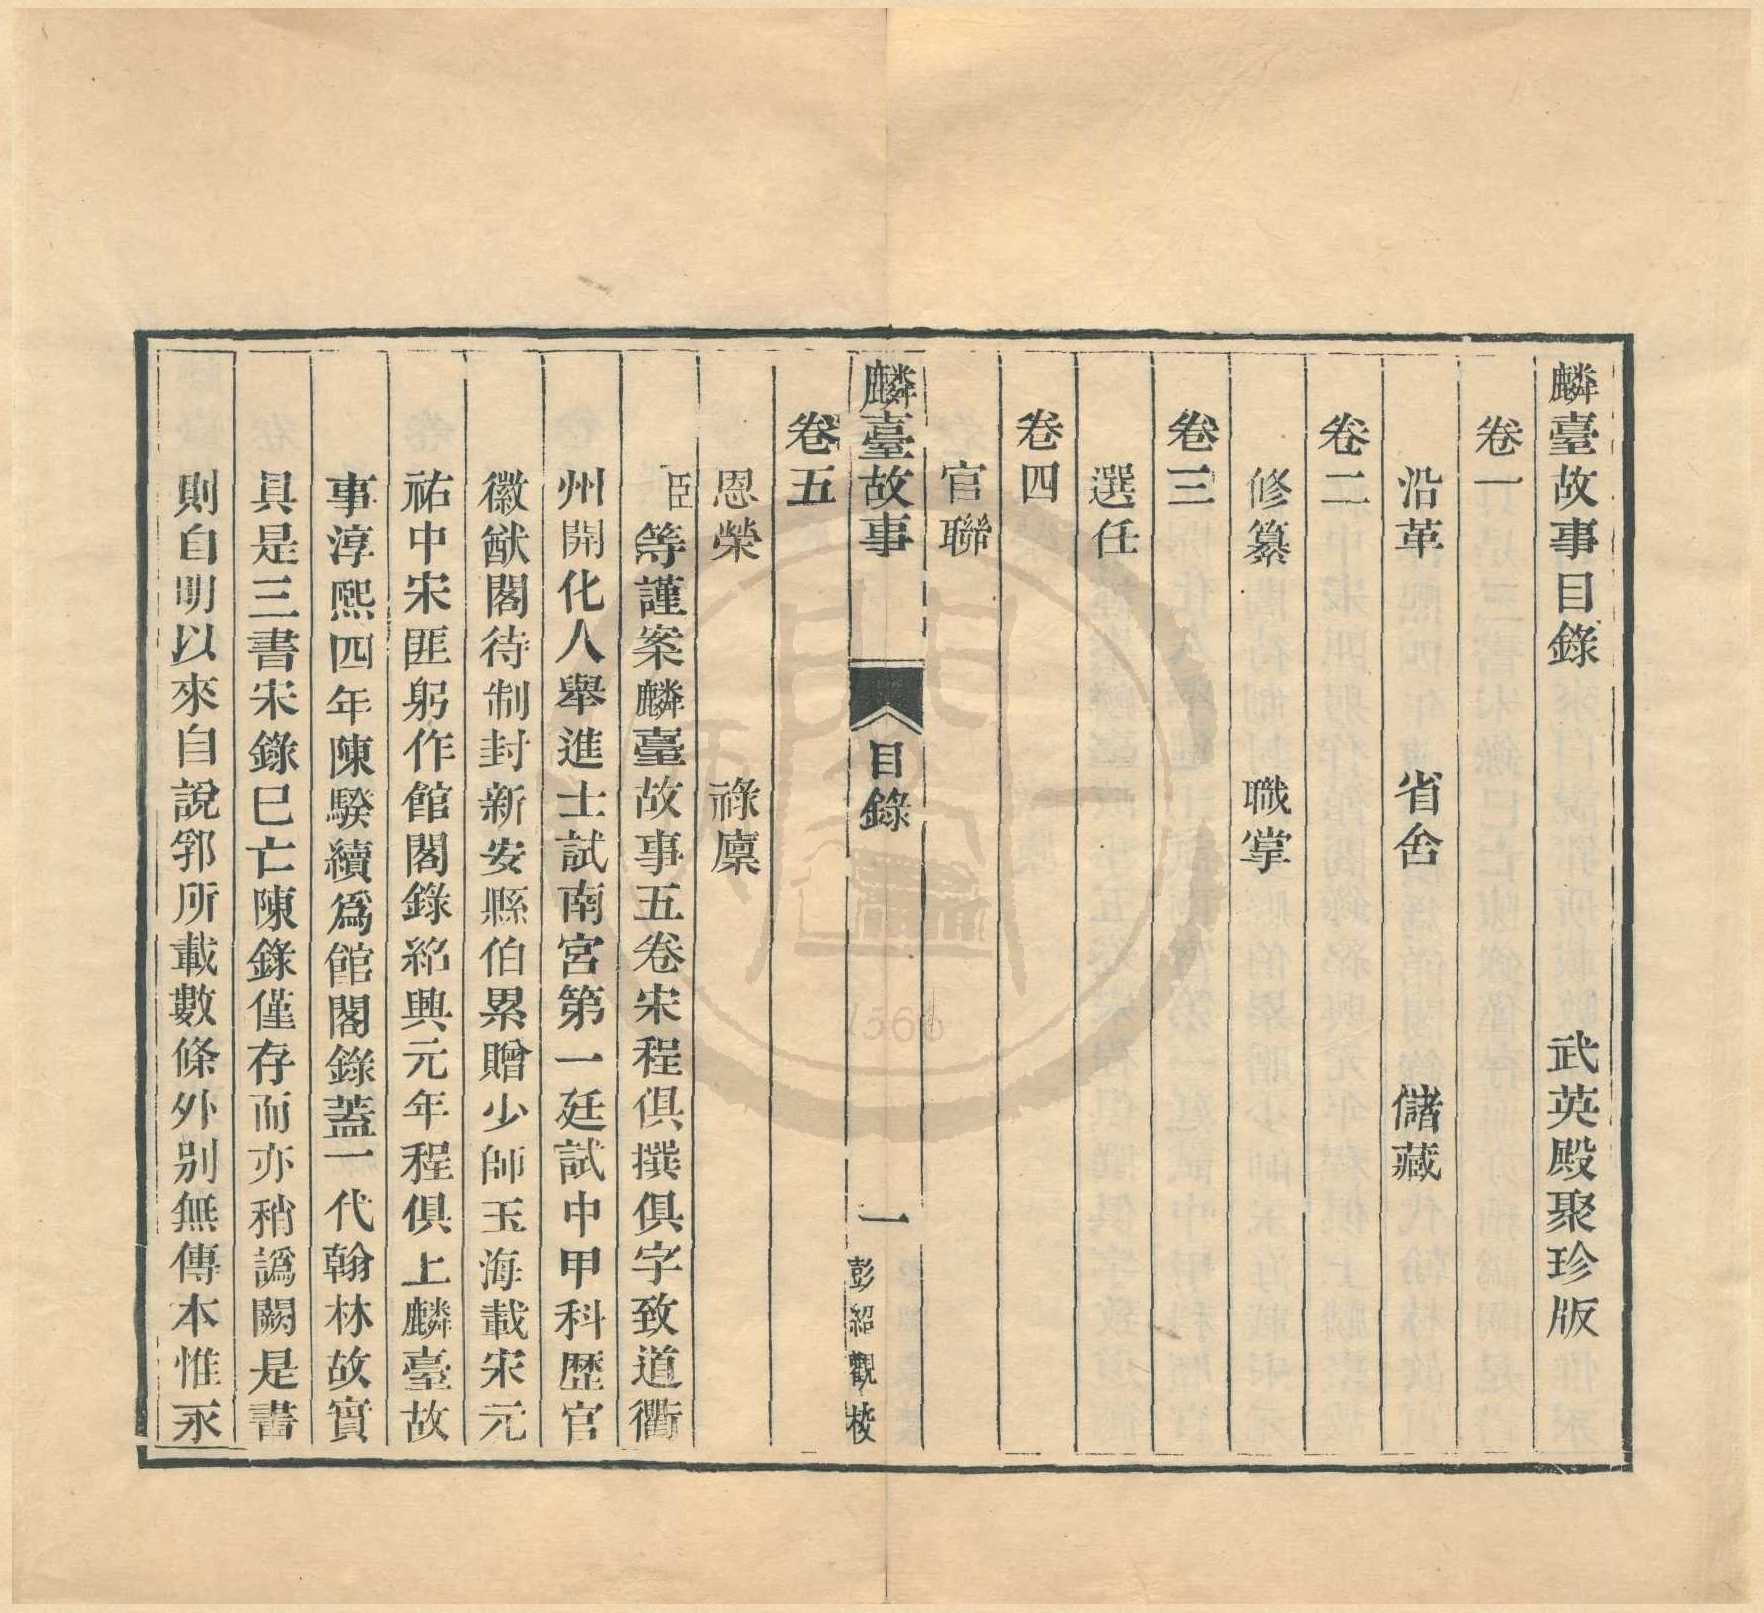 麟臺故事目錄 武英殿聚珍版
卷一
沿革 省舍 儲藏
卷二
修纂 職掌
卷三
選任
卷四
官聯
麟臺故事 目錄 一 彭紹觀校
卷五
恩榮 祿廩
臣等謹案麟臺故事五卷宋程俱撰俱字致道衢
州開化人舉進士試南宮第一廷試中甲科歷官
徽猷閣待制封新安縣伯累贈少師玉海載宋元
祐中宋匪躬作館閣錄紹興元年程俱上麟臺故
事淳熙四年陳騤續爲館閣錄蓋一代翰林故實
具是三書宋錄已亡陳錄僅存而亦稍譌闕是書
則自明以來自說郛所載數條外別無傳本惟永
1566